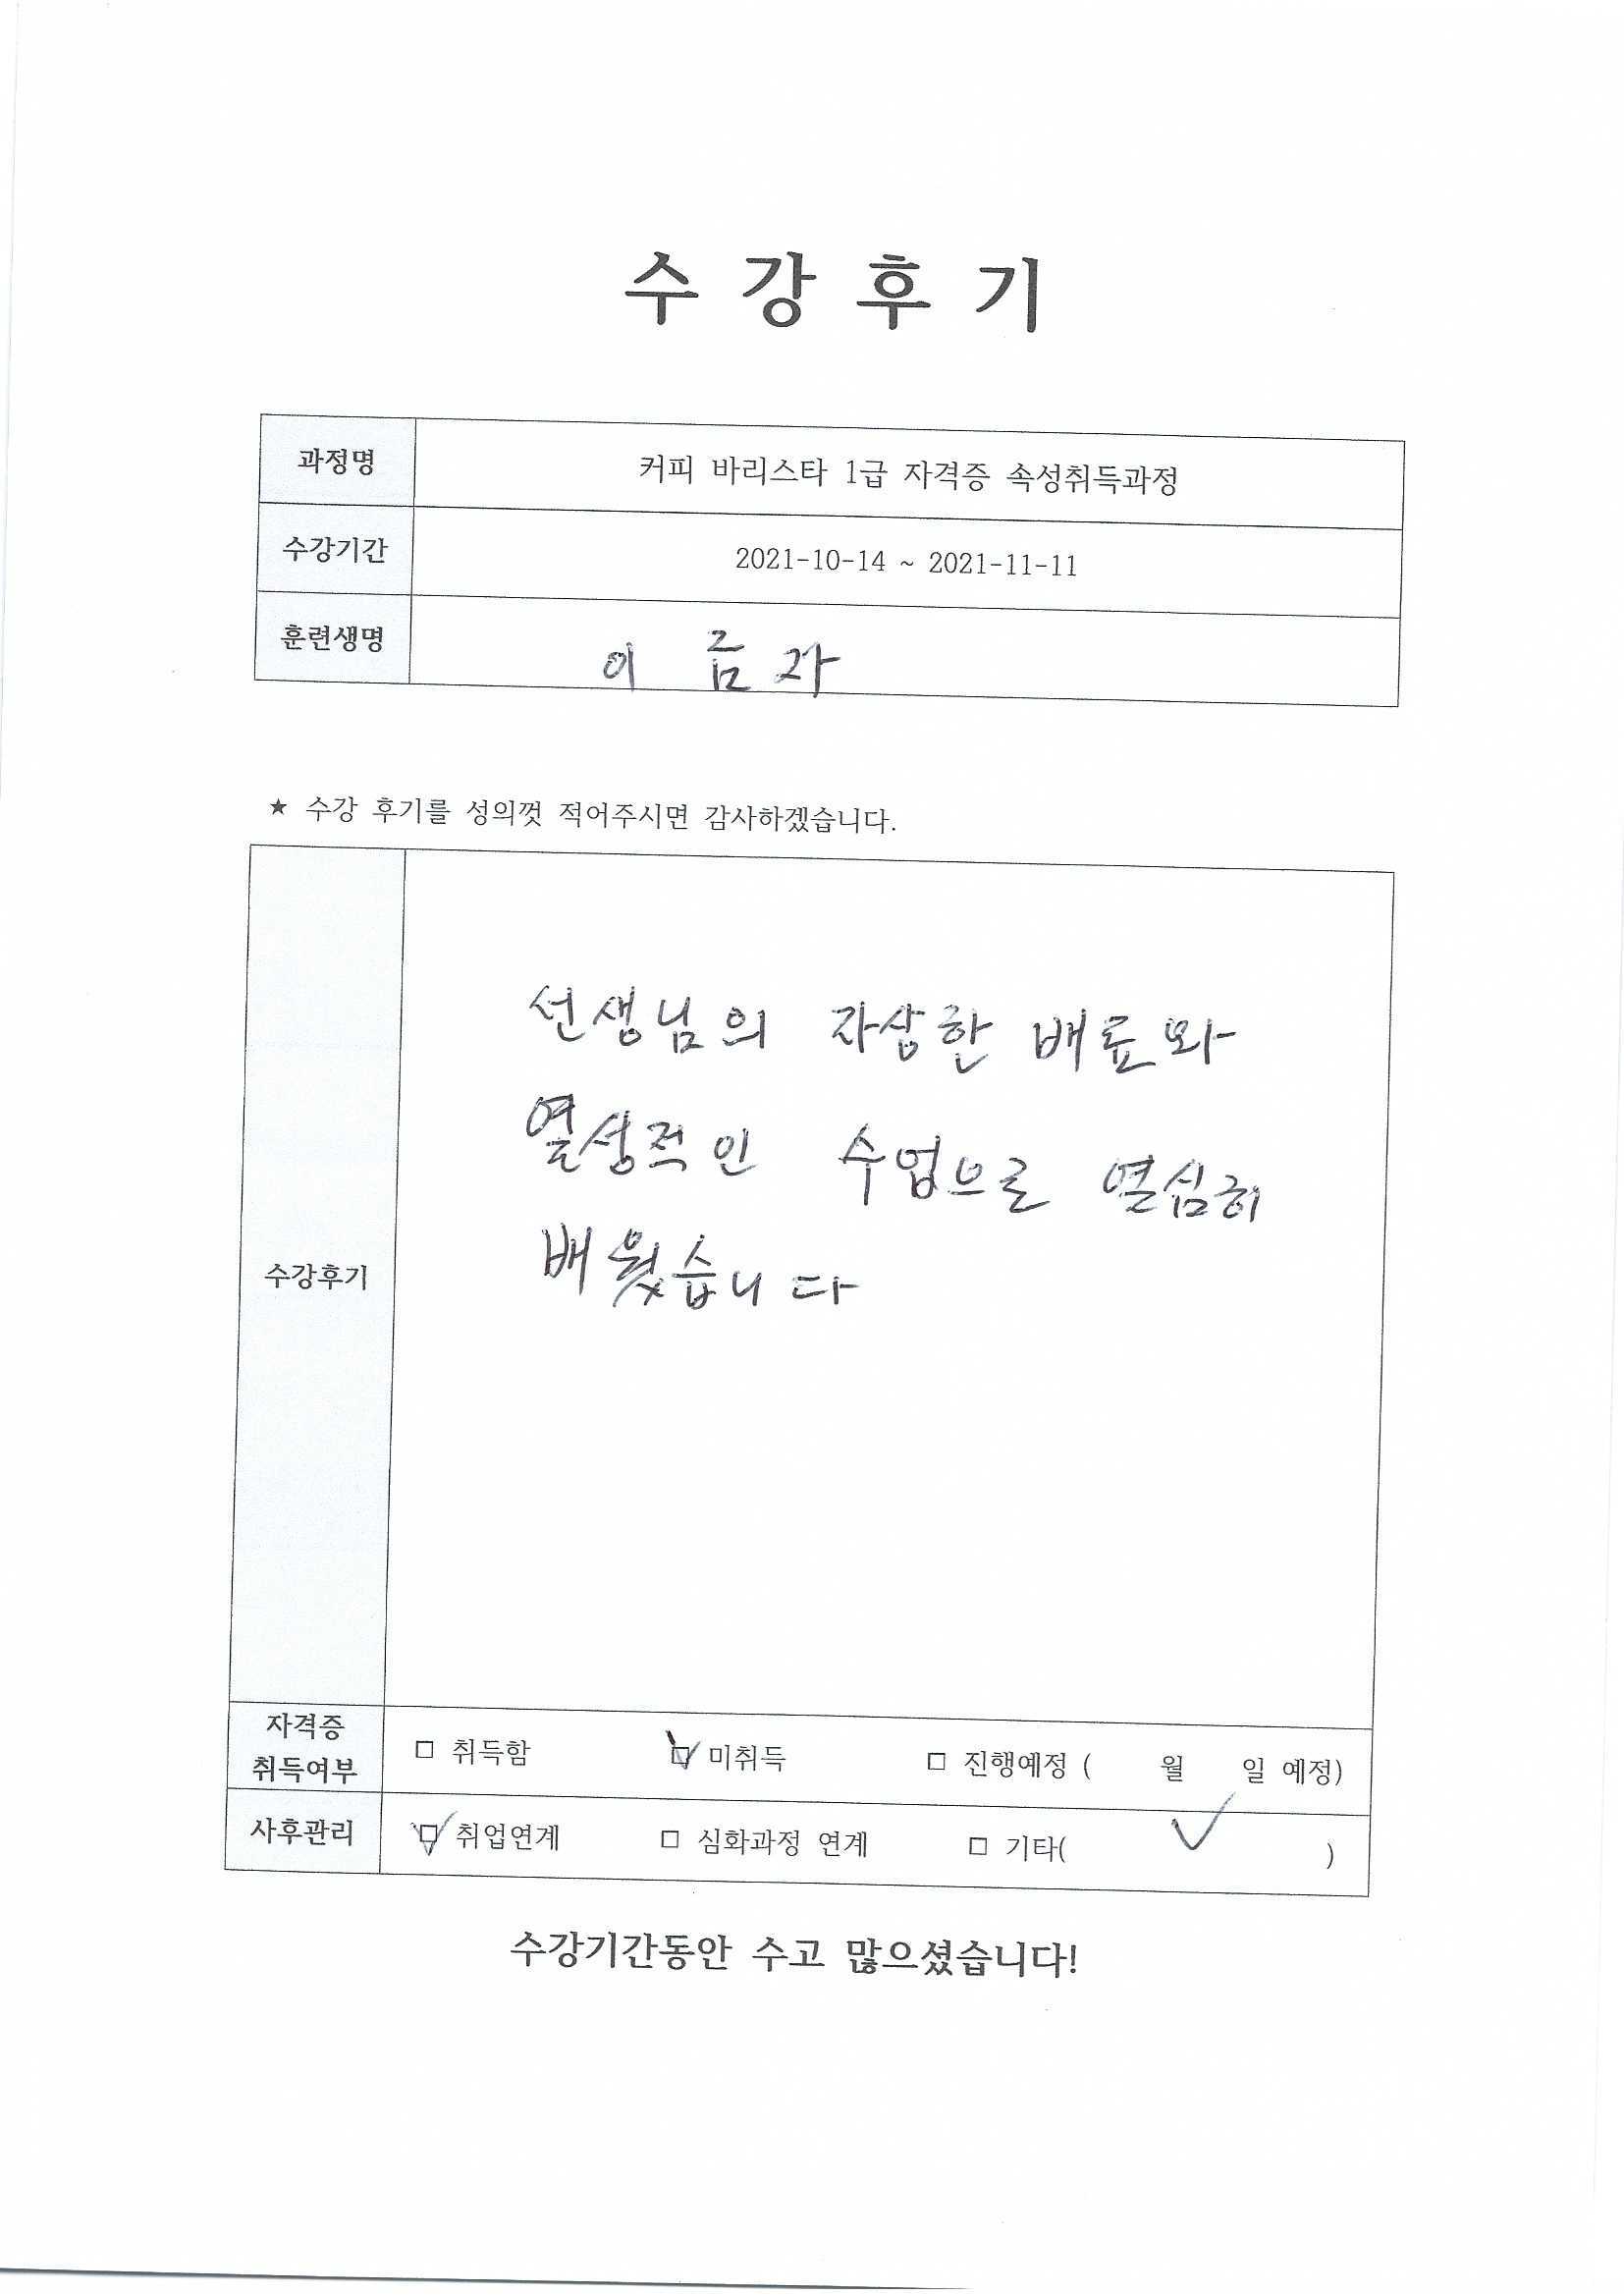 수 강 후 기
과정명 커피 바리스타 1급 자격증 속성취득과정
수강기간 2021-10-14 ~ 2021-11-11
훈련생명 이 금 자
★ 수강 후기를 성의껏 적어주시면 감사하겠습니다.
선생님의 자상한 배료와
열성적인 수업으로 열심히
수강후기 배웠습니다
자격증
취득여부 □ 취득함 ☑ 미취득 □ 진행예정 ( 월 일 예정)
사후관리 ☑ 취업연계 □ 심화과정 연계 □ 기타( ✓ )
수강기간동안 수고 많으셨습니다!